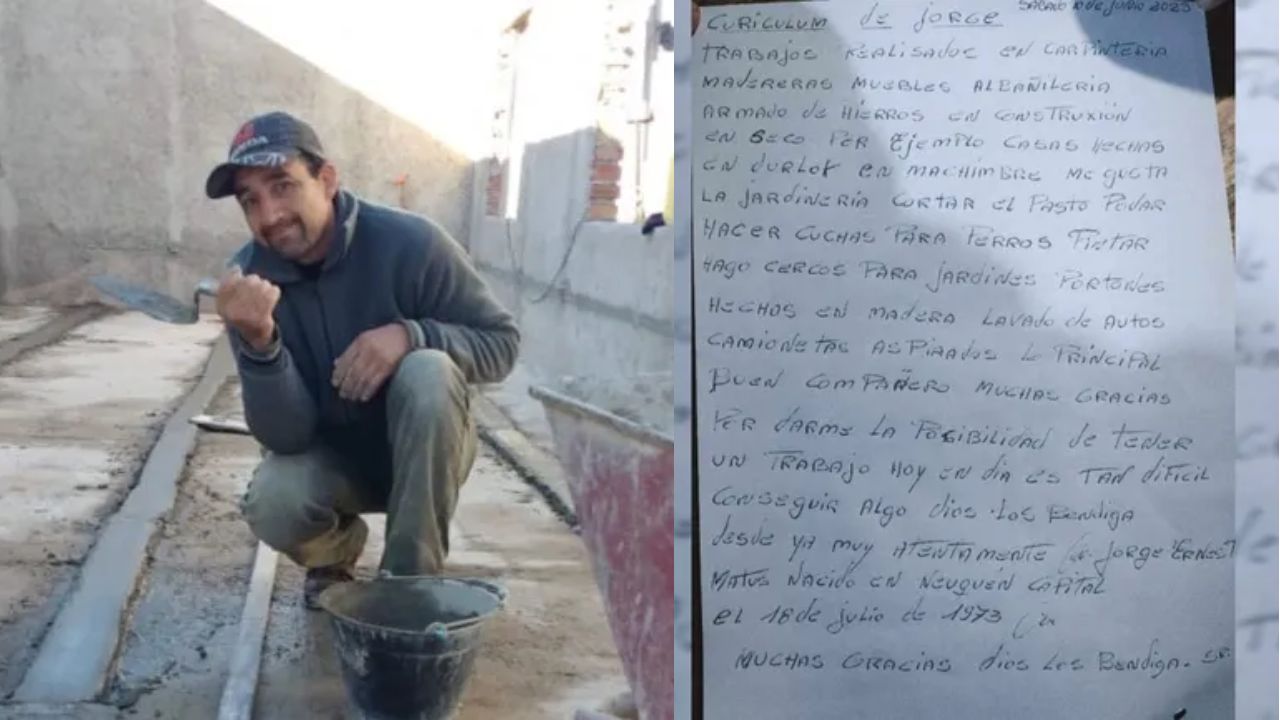 SABADO 10 de Junio 2023
CURICULUM de jORGE
TRABAJOS REALISADOS EN CARPINTERIA
MADERERAS MUEBLES ALBAÑILERIA
ARMADO de HIERROS EN CONSTRUXIÓN
EN SECO PER EjEMPLO CASAS HECHAS
EN dURLOK EN MACHIMBRE ME GUSTA
LA JARDINERIA CORTAR el PASTO PODAR
HACER CUCHAS PARA PERROS PINTAR
HAGO CERCOS PARA JARDINES PORTONES
HECHOS EN MADERA LAVADO de AUTOS
CAMIONETAS ASPIRADOS LO PRINCIPAL
BUEN COMPAÑERO MUCHAS GRACIAS
PER DARME LA POSIBILIDAD de TENER
UN TRABAJO HOY EN día ES TAN dIFICIL
CONSEGUIR ALGO dIOS LOS BENDIGA
desde YA MUY ATENTAMENTE JORGE ERNEST
MATUS NACIDO EN NEUQUÉN CAPITAL
el 18 de julio de 1973
MUCHAS GRACIAS dIOS LES BENDIGA.